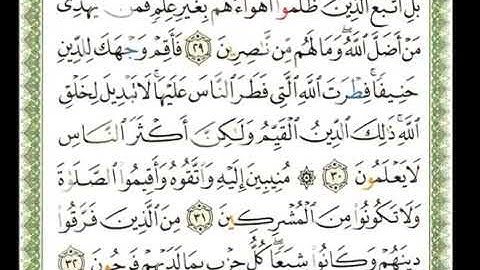 بَلِ ٱتَّبَعَ ٱلَّذِينَ ظَلَمُوٓا۟ أَهْوَآءَهُم بِغَيْرِ عِلْمٍ فَمَن يَهْدِى
مَنْ أَضَلَّ ٱللَّهُ وَمَا لَهُم مِّن نَّـٰصِرِينَ ٢٩ فَأَقِمْ وَجْهَكَ لِلدِّينِ
حَنِيفًا فِطْرَتَ ٱللَّهِ ٱلَّتِى فَطَرَ ٱلنَّاسَ عَلَيْهَا لَا تَبْدِيلَ لِخَلْقِ
ٱللَّهِ ذَٰلِكَ ٱلدِّينُ ٱلْقَيِّمُ وَلَـٰكِنَّ أَكْثَرَ ٱلنَّاسِ
لَا يَعْلَمُونَ ٣٠ ۞ مُنِيبِينَ إِلَيْهِ وَٱتَّقُوهُ وَأَقِيمُوا۟ ٱلصَّلَوٰةَ
وَلَا تَكُونُوا۟ مِنَ ٱلْمُشْرِكِينَ ٣١ مِنَ ٱلَّذِينَ فَرَّقُوا۟
دِينَهُمْ وَكَانُوا۟ شِيَعًا كُلُّ حِزْبٍۭ بِمَا لَدَيْهِمْ فَرِحُونَ ٣٢